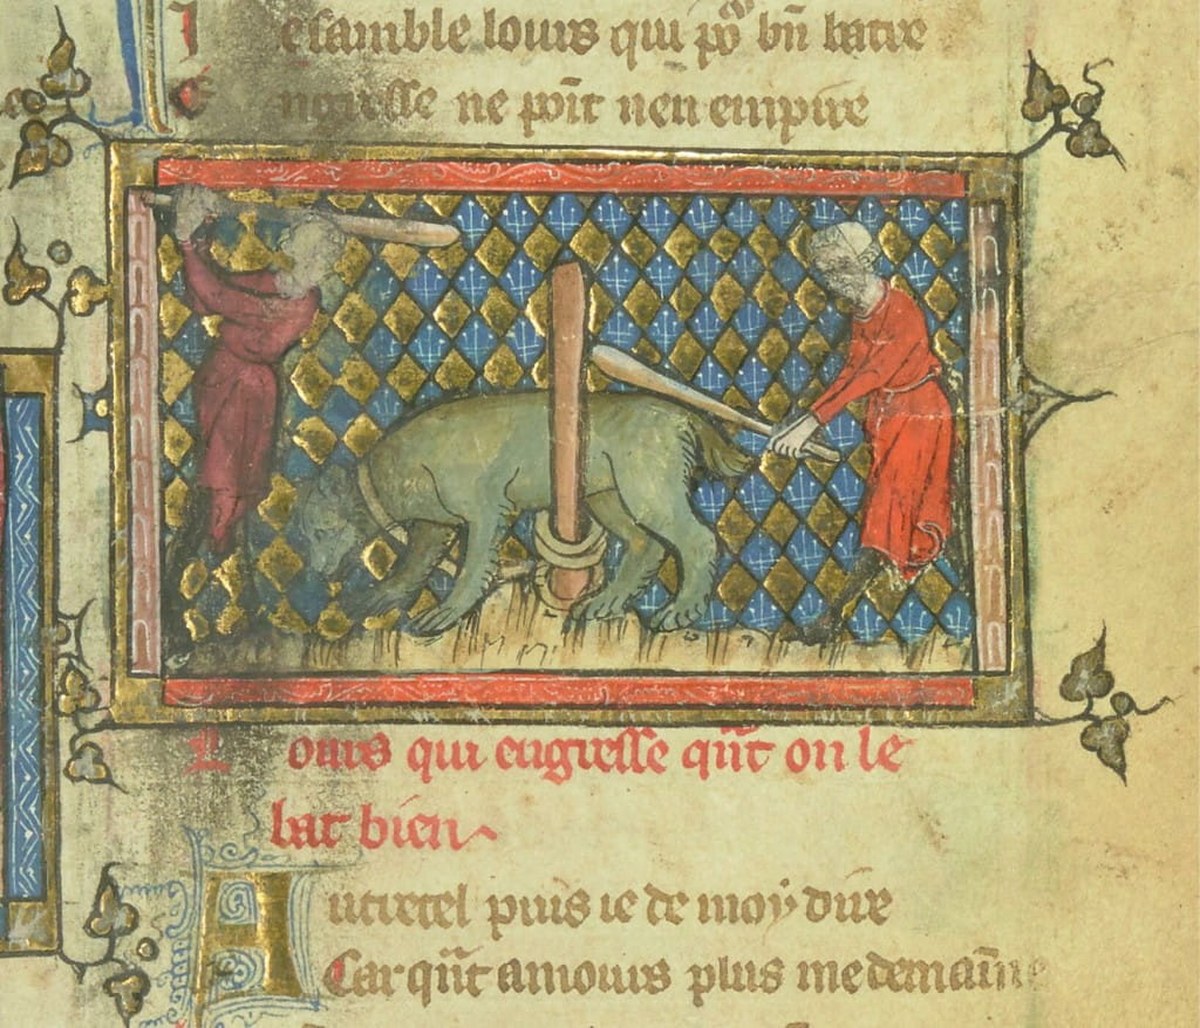 Resamble lours qui po² bñ batre
Engresse ne poĩt neu empire
Lours qui engresse qñt on le
bat bien
Autretel puis ie de moy dire
Car qñt amours plus me demaĩne